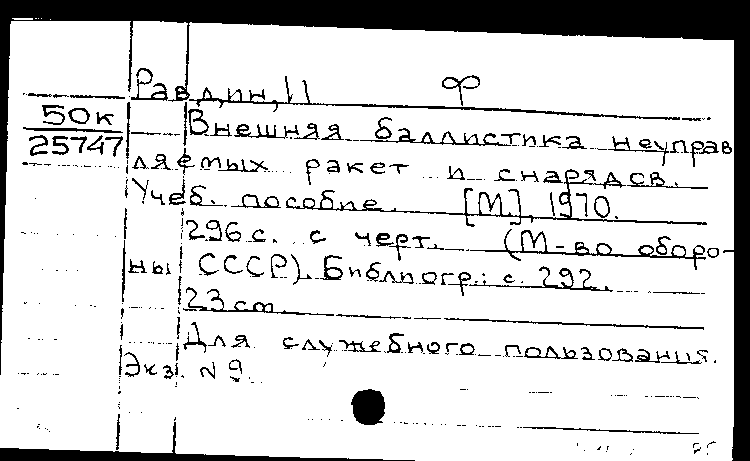 Равдин, И Ф
50к
25747
Внешняя баллистика неуправ
ляемых ракет и снарядов.
Учеб. пособие. [М], 1970.
296 с. с черт. (М-во оборо-
ны СССР). Библиогр.: с. 292.
23 см.
Для служебного пользования.
Экз. N 9.